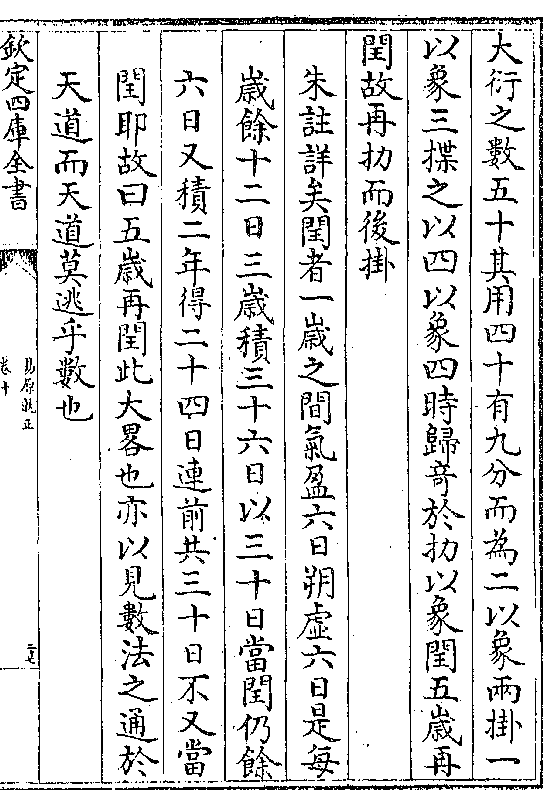 大衍之數五十其用四十有九分而為二以象兩掛一
以象三揲之以四以象四時歸竒於扐以象閏五歲再
閏故再扐而後掛
朱註詳矣閏者一歲之間氣盈六日朔虛六日是每
歲餘十二日三歲積三十六日以三十日當閏仍餘
六日又積二年得二十四日連前共三十日不又當
閏耶故曰五歲再閏此大畧也亦以見數法之通於
天道而天道莫逃乎數也
欽定四庫全書
易原就正
卷十